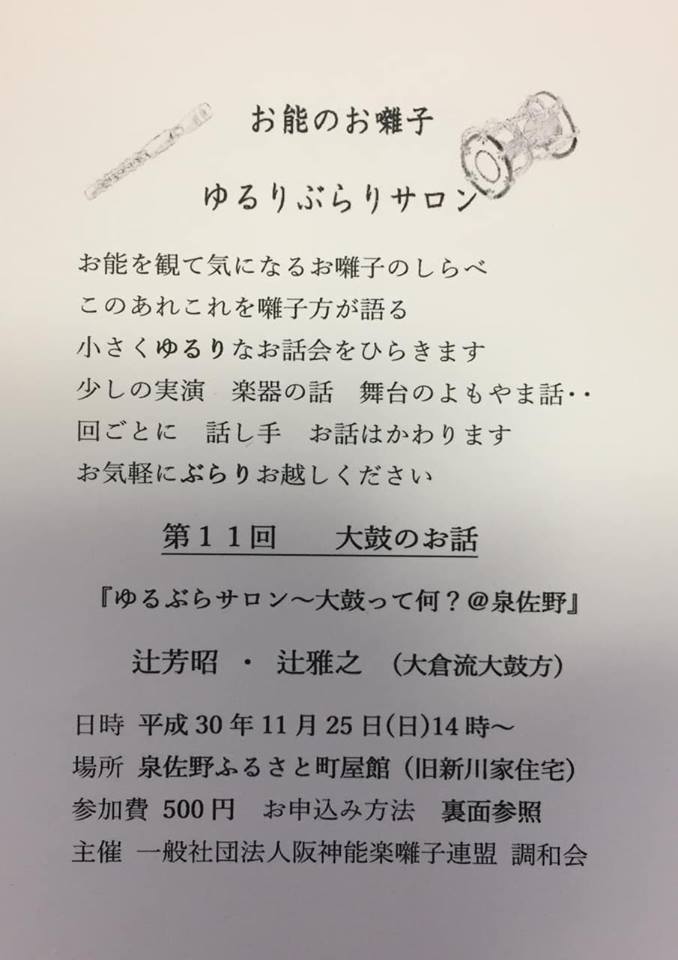 お能のお囃子
ゆるりぶらりサロン
お能を観て気になるお囃子のしらべ
このあれこれを囃子方が語る
小さくゆるりなお話会をひらきます
少しの実演　楽器の話　舞台のよもやま話・・
回ごとに　話し手　お話はかわります
お気軽にぶらりお越しください
第１１回　　大鼓のお話
『ゆるぶらサロン～大鼓って何？＠泉佐野』
辻芳昭 ・ 辻雅之 （大倉流大鼓方）
日時 平成30年11月25日(日)14時～
場所 泉佐野ふるさと町屋館（旧新川家住宅）
参加費 500円　お申込み方法　裏面参照
主催 一般社団法人阪神能楽囃子連盟 調和会